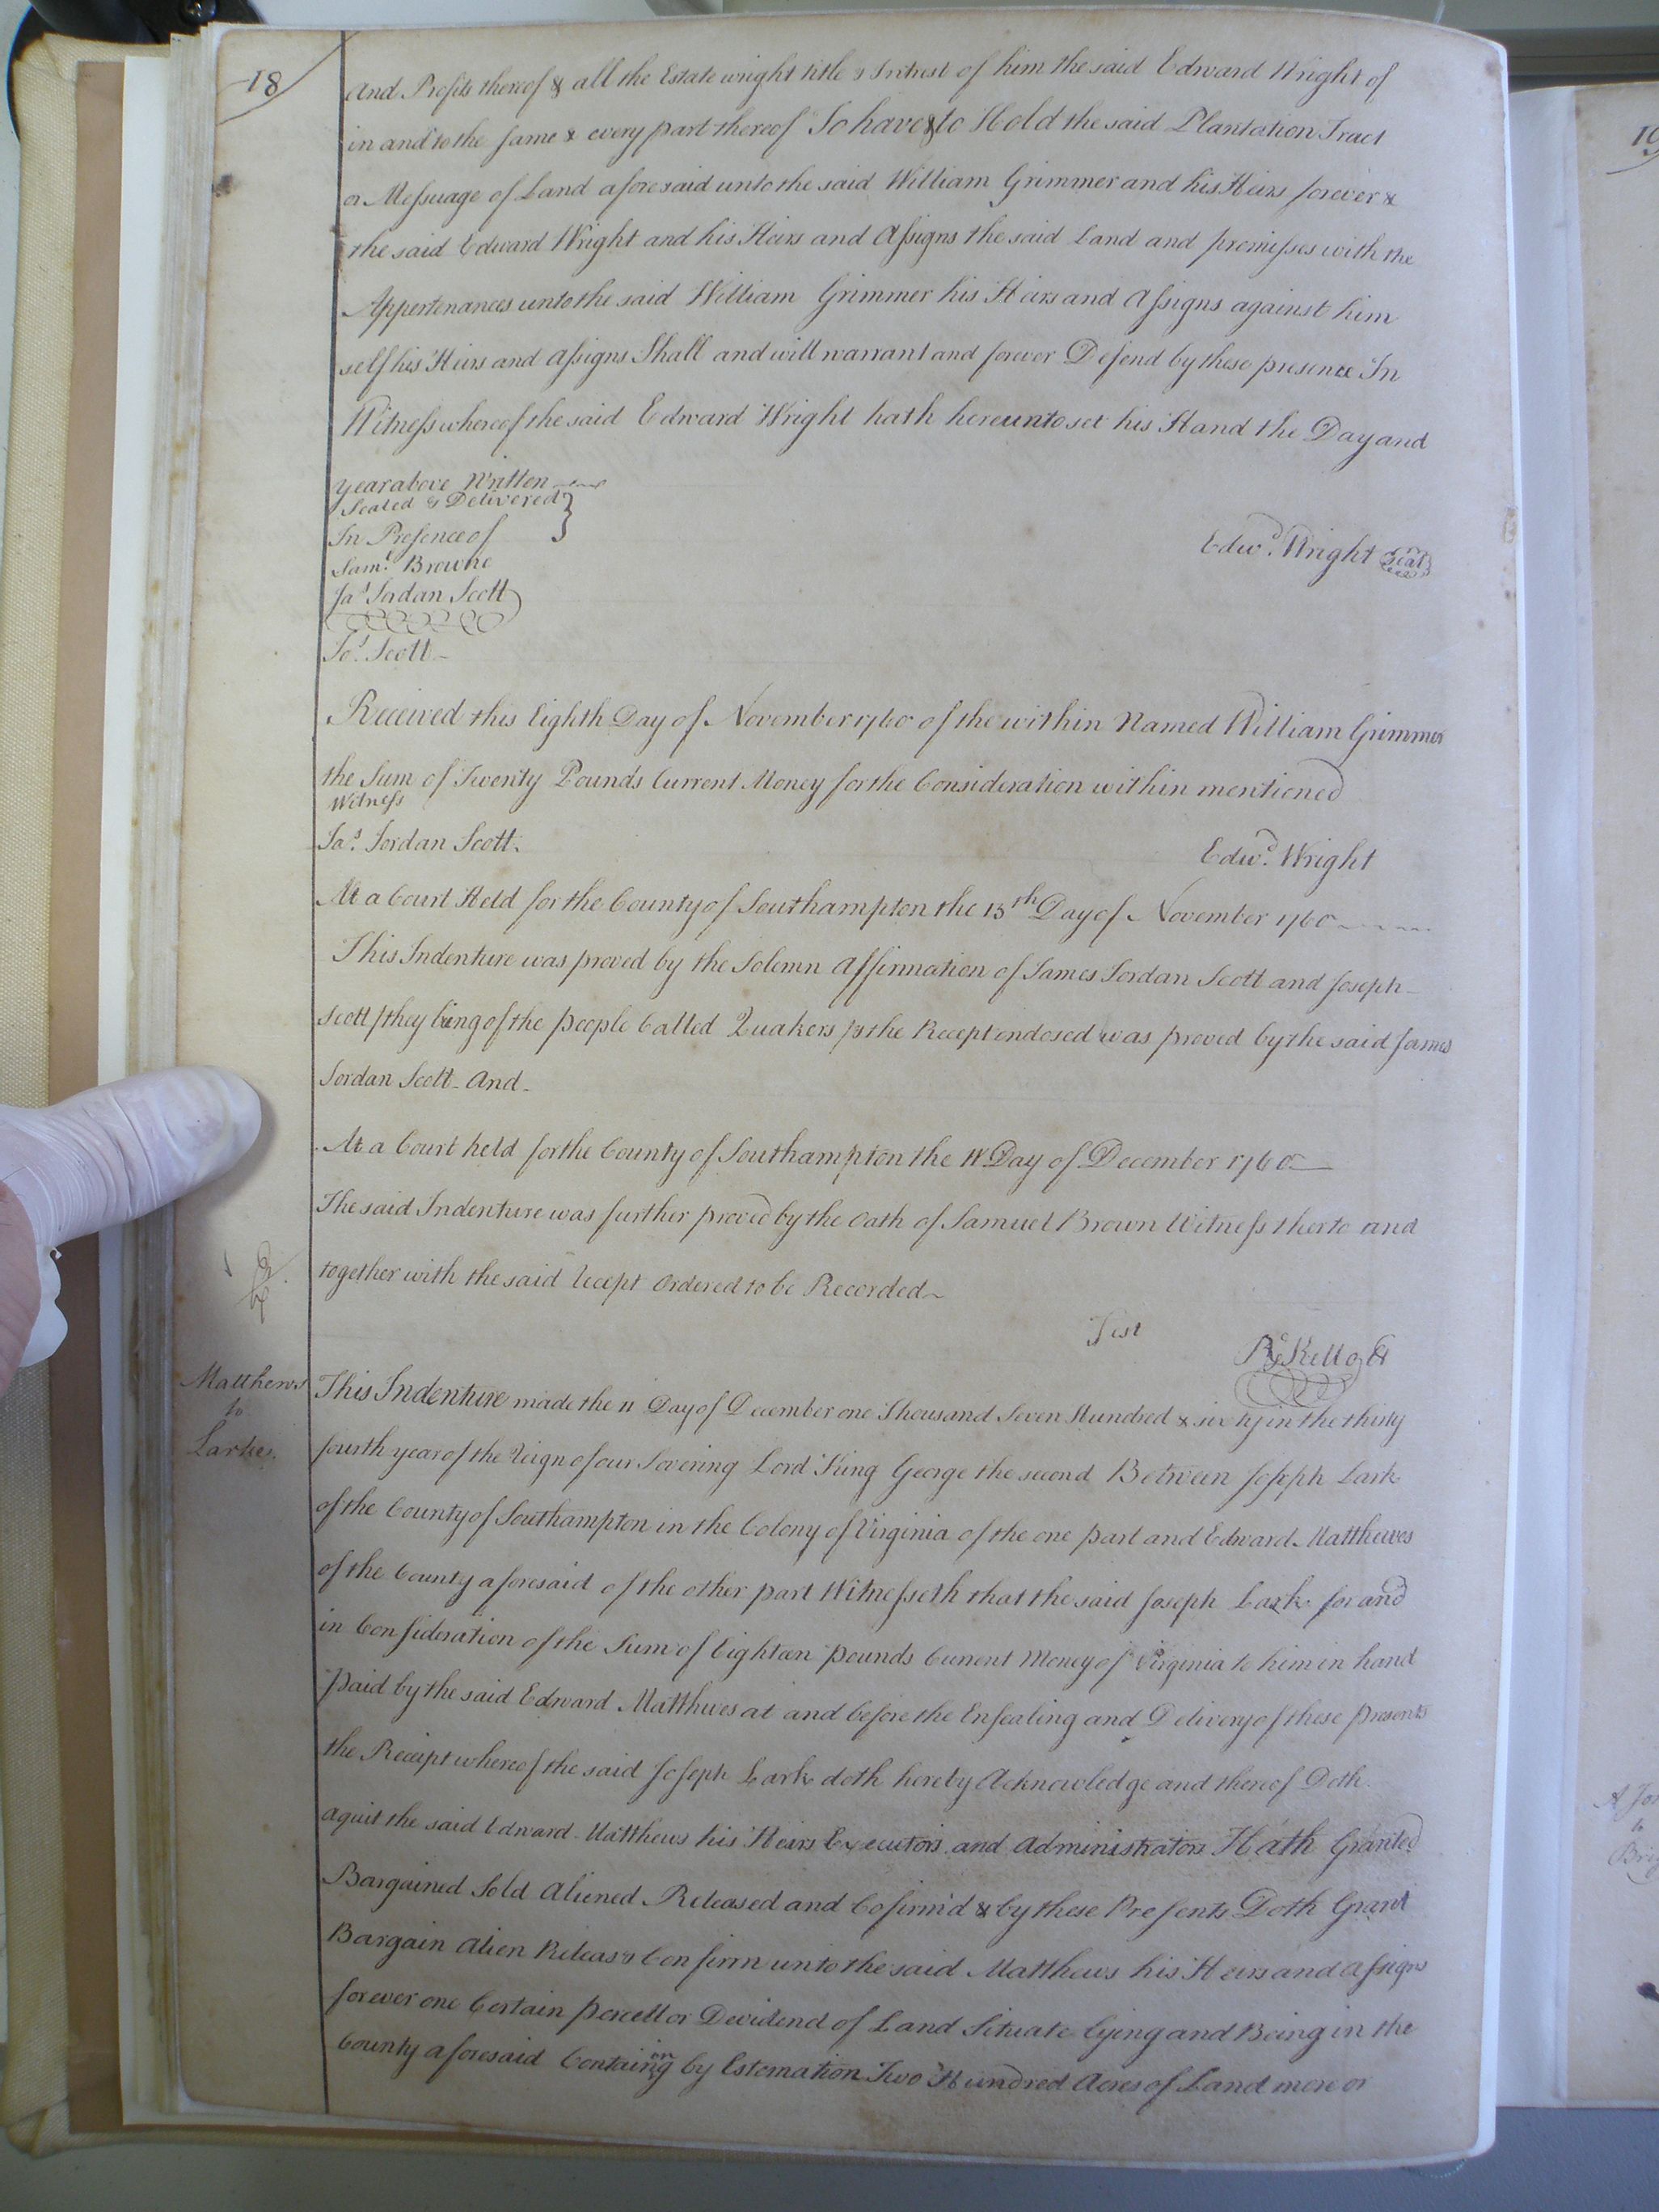 18
And Profits thereof & all the Estate wright title & Intrest of him the said Edward Wright of
in and to the same & every part thereof To have & to Hold the said Plantation Tract
or Messuage of Land aforesaid unto the said William Grimmer and his Heirs forever &
the said Edward Wright and his Heirs and Assigns the said Land and premisses with the
Appertenances unto the said William Grimmer his Heirs and Assigns against him
self his Heirs and Assigns Shall and will warrant and forever Defend by these presence In
Witness whereof the said Edward Wright hath hereunto set his Hand the Day and
year above Written
Sealed & Delivered
In Presence of
Edwd. Wright Seal
Saml. Browne
Jas Jordan Scott
Jos. Scott
Received this Eighth Day of November 1760 of the within Named William Grimmer
the Sum of Twenty Pounds Current Money for the Consideration within mentioned
Witness
Jas. Jordan Scott.
Edwd. Wright
At a Court Held for the County of Southampton the 13th Day of November 1760
This Indenture was proved by the Solemn Affirmation of James Jordan Scott and Joseph
Scott they being of the people Called Quakers the Recept endosed was proved by the said James
Jordan Scott And
At a Court held for the County of Southampton the 11 Day of December 1760
The said Indenture was further proved by the Oath of Samuel Brown Witness therto and
together with the said recept Ordered to be Recorded
Test
Rd Kello Ck
Matthews
to
Larke
This Indenture made the 11 Day of December one Thousand Seven Hundred & sixty in the thirty
fourth year of the Reign of our Sovering Lord King George the second Between Joseph Lark
of the County of Southampton in the Colony of Virginia of the one part and Edward Matthewes
of the County aforesaid of the other part Witnesseth that the said Joseph Lark for and
in Consideration of the Sum of Eighteen pounds Current Money of Virginia to him in hand
paid by the said Edward Matthwes at and before the Ensealing and Delivery of these presents
the Receipt whereof the said Joseph Lark doth hereby Acknowledge and thereof Doth
aquit the said Edward Matthews his Heirs Executors and Administrators Hath Granted
Bargained Sold Aliened Released and Cofirm'd & by these Presents Doth Grant
Bargain Alien Releas & Confirm unto the said Matthews his Heirs and Assigns
forever one Certain percell or Devidend of Land Situate lying and Being in the
County aforesaid Containing by Estomation Two Hundred Acres of Land more or